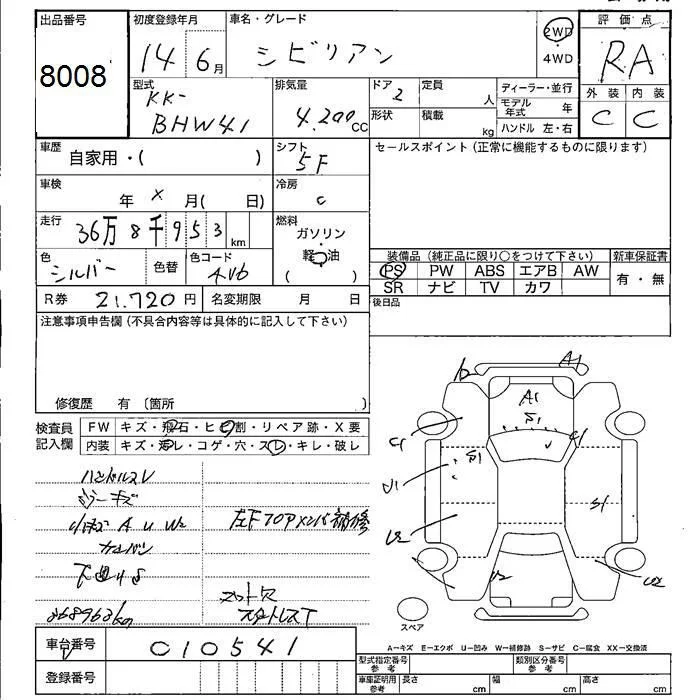 出品番号
8008
初度登録年月
14年 6月
車名・グレード
シビリアン
2WD
4WD
評価点
RA
外装 内装
C C
型式
KK-
BHW41
排気量
4.200CC
ドア
2
定員
人
形状
積載
kg
ディーラー・並行
モデル年式 年
ハンドル 左・右
車歴
自家用・( )
シフト
5F
セールスポイント (正常に機能するものに限ります)
車検
年 × 月( 日)
冷房
C
走行
36万8千953km
燃料
ガソリン
軽油
( )
色
シルバー
色替
色コード
装備品 (純正品に限り〇をつけて下さい)
新車保証書
PS PW ABS エアB AW
有・無
SR ナビ TV カワ
R券 21.720円
名変期限 月 日
後日品
注意事項申告欄 (不具合内容等は具体的に記入して下さい)
修復歴 有 〔箇所 〕
検査員
記入欄
FW キズ・飛石・ヒビ割・リペア跡・X要
内装 キズ・汚レ・コゲ・穴・スレ・キレ・破レ
ハンドルスレ
A U W2
368963km
A1
A1
S1
S1
U1
U2
S1
U2
スペア
A-キズ E-エクボ U-凹み W-補修跡 S-サビ C-腐食 XX-交換済
車台番号
010541
登録番号
型式指定番号
参考
類別区分番号
参考
車庫証明用
参考
長さ cm 幅 cm 高さ cm